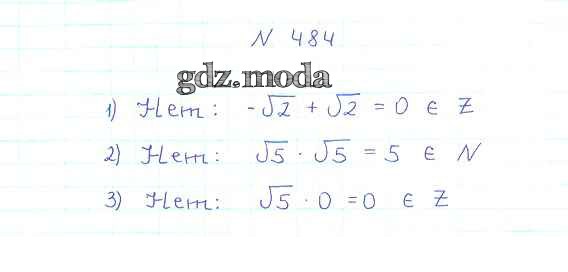 N 484
gdz.moda
1) Нет: -√2 + √2 = 0 ∈ Z
2) Нет: √5 · √5 = 5 ∈ N
3) Нет: √5 · 0 = 0 ∈ Z